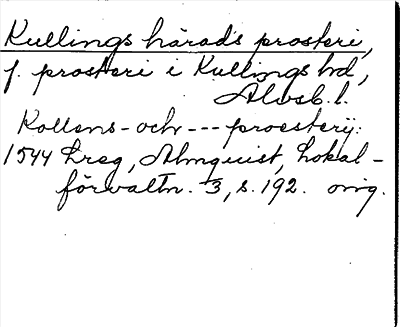 Kullings härads prosteri,
f. prosteri i Kullings hd,
Älvsb. l.
Kollens- och --- proesterij:
1544 Lreg, Almquist, Lokal-
förvaltn. 3, s. 192. orig.